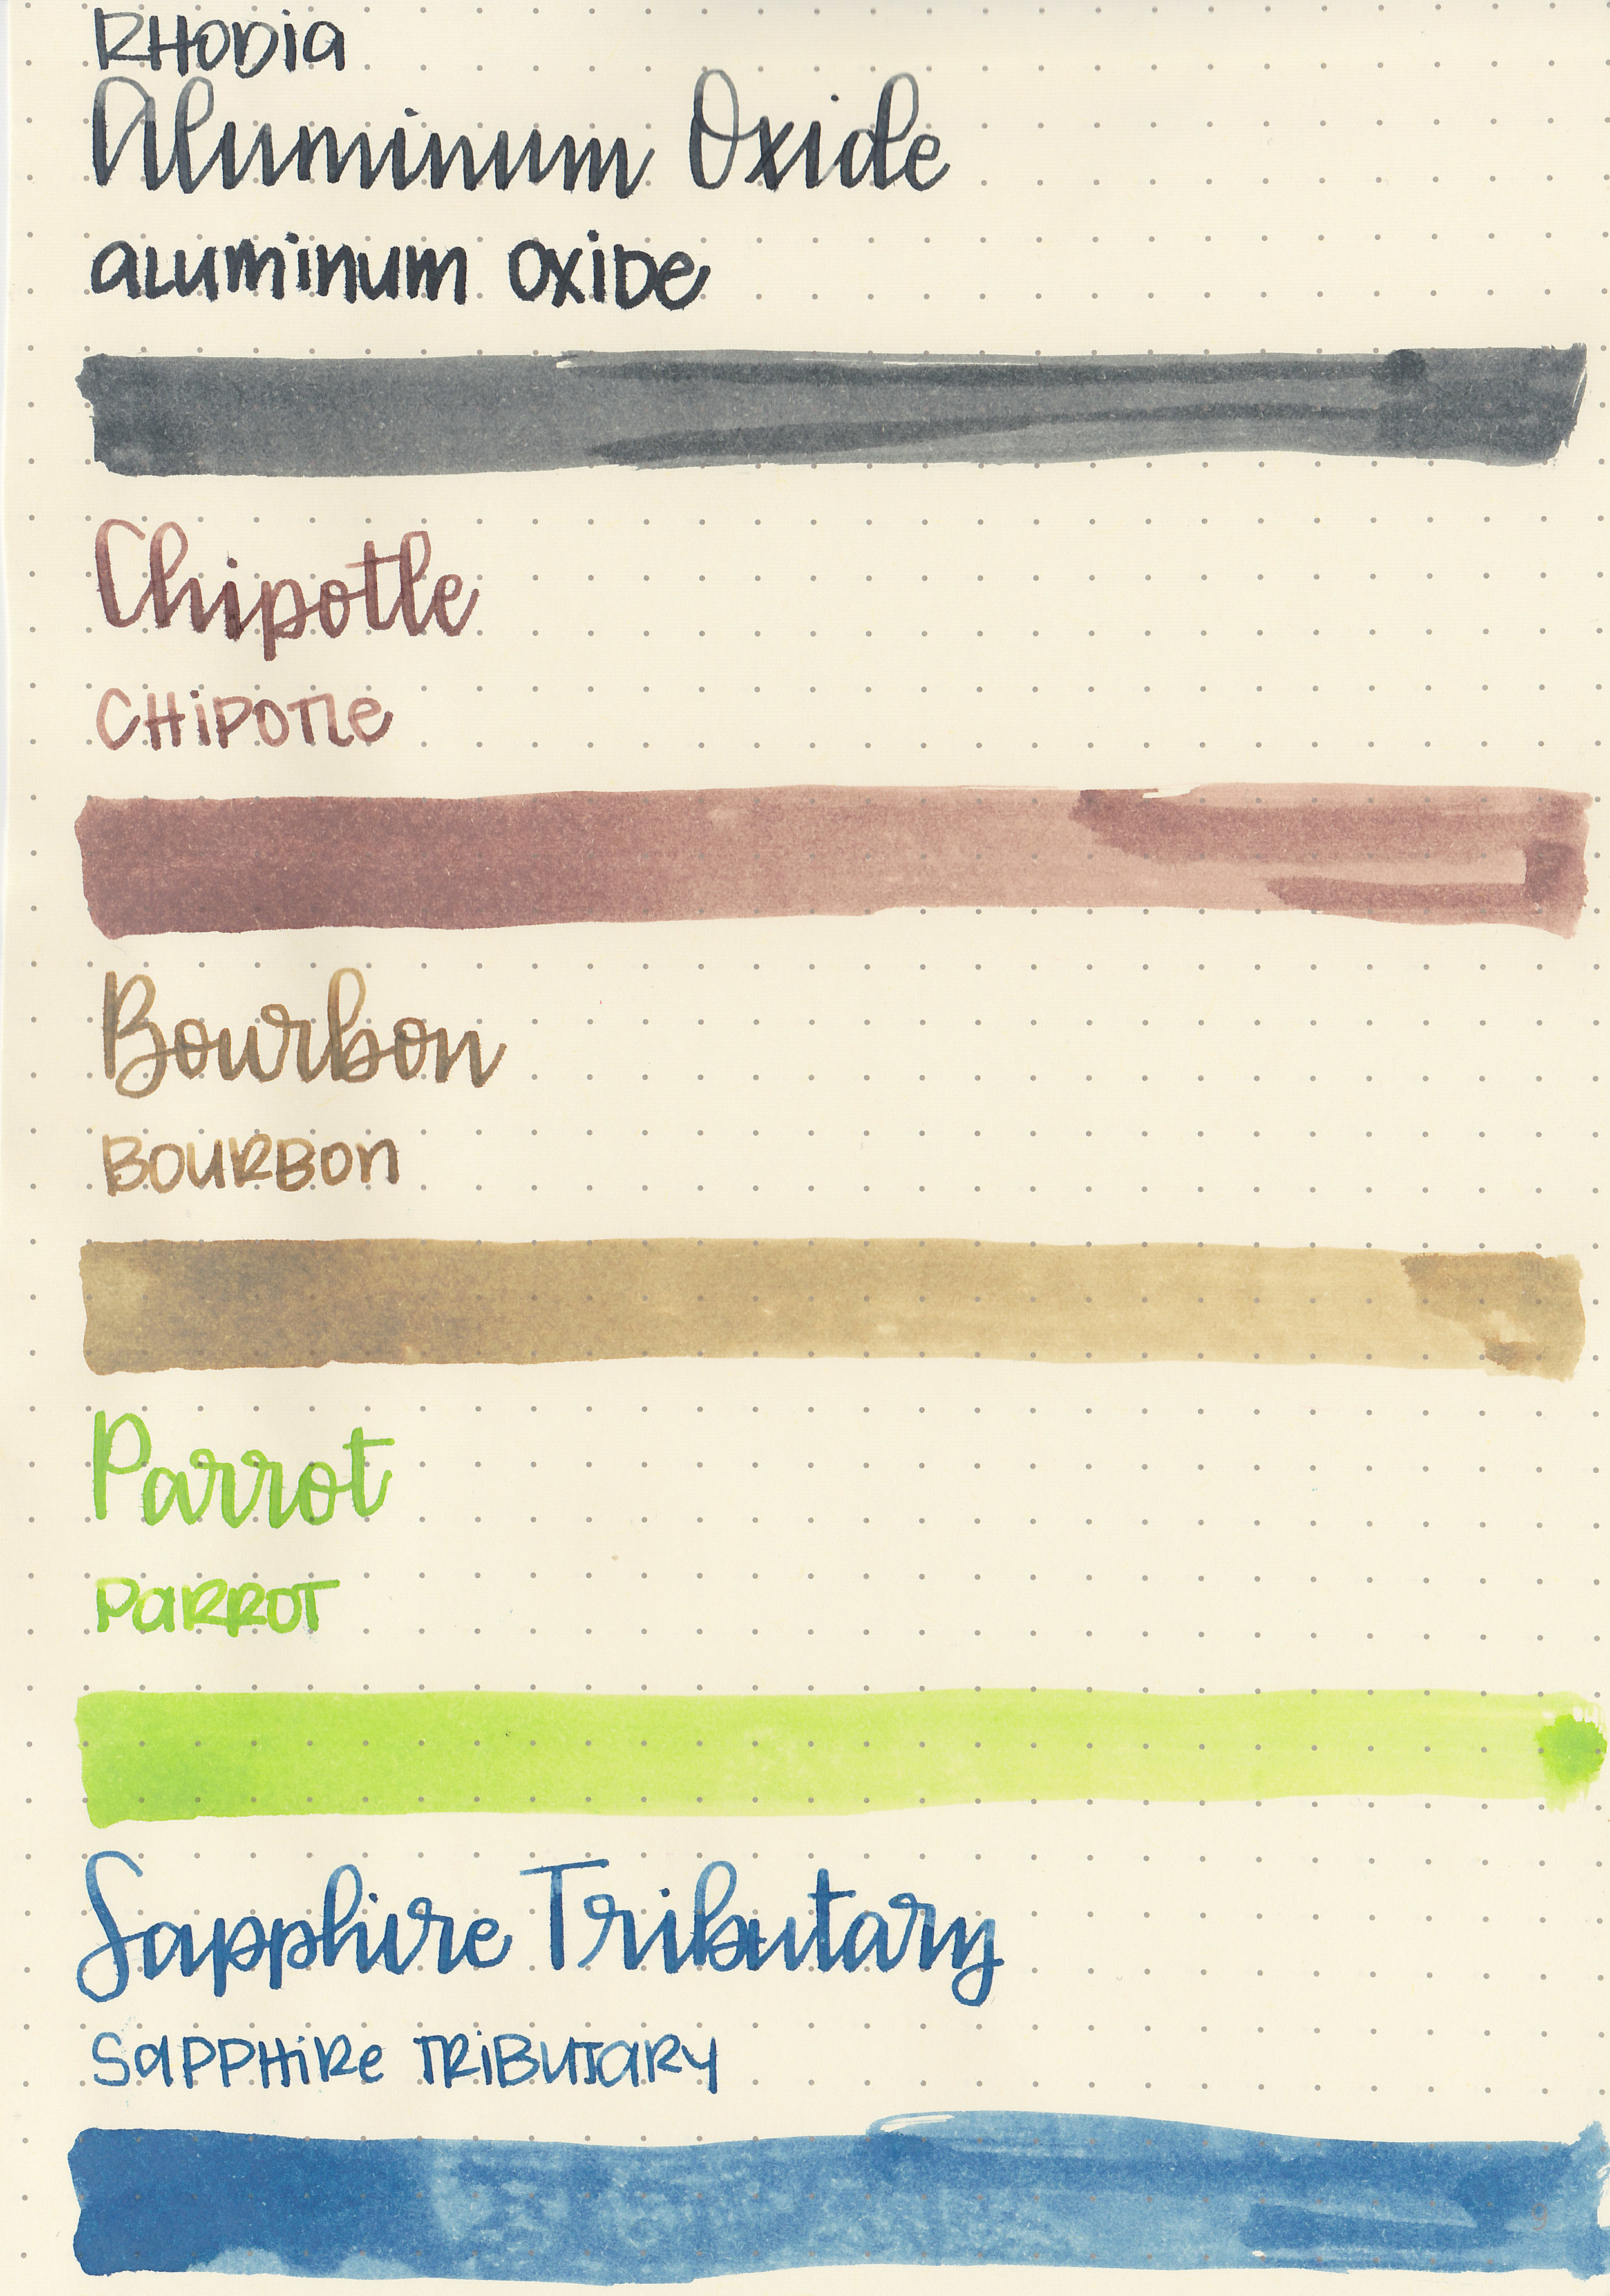 RHODia
Aluminum Oxide
aLuminum OxiDe
Chipotle
CHiPOTLe
Bourbon
BOURBOn
Parrot
PaRROT
Sapphire Tributary
SaPPHiRe TRiBUTaRY